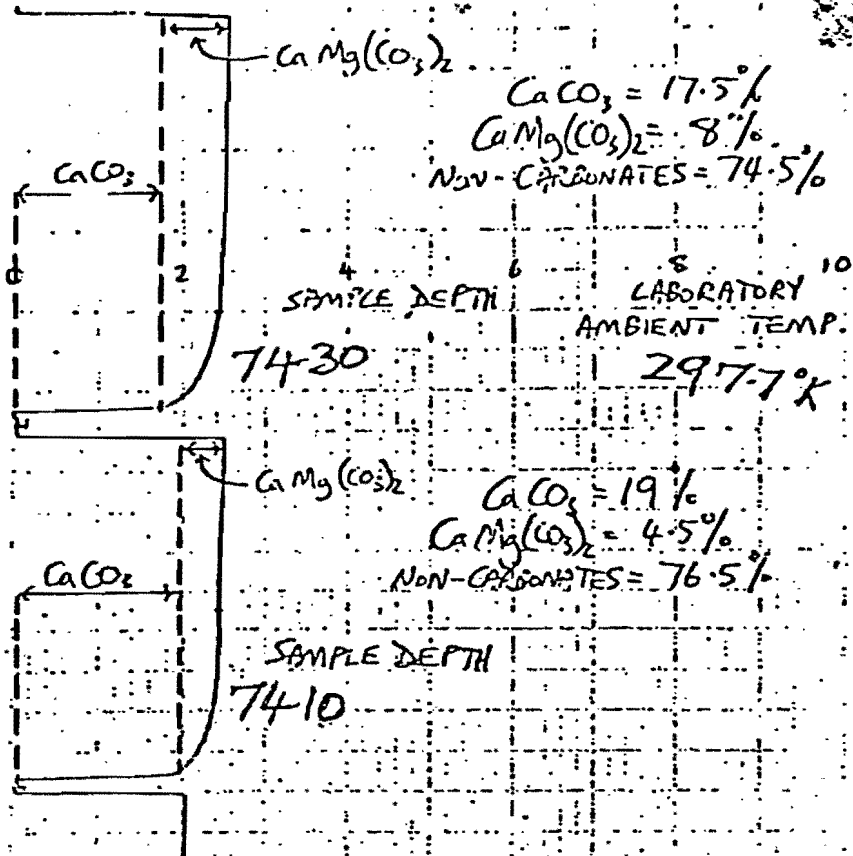 CaMg(CO3)2
CaCO3 = 17.5%
CaMg(CO3)2 = 8%
NON-CARBONATES = 74.5%
CaCO3
0 2 4 6 8 10
SAMPLE DEPTH
7430
LABORATORY
AMBIENT TEMP.
297.7°K
CaMg(CO3)2
CaCO3 = 19%
CaMg(CO3)2 = 4.5%
NON-CARBONATES = 76.5%
CaCO3
SAMPLE DEPTH
7410